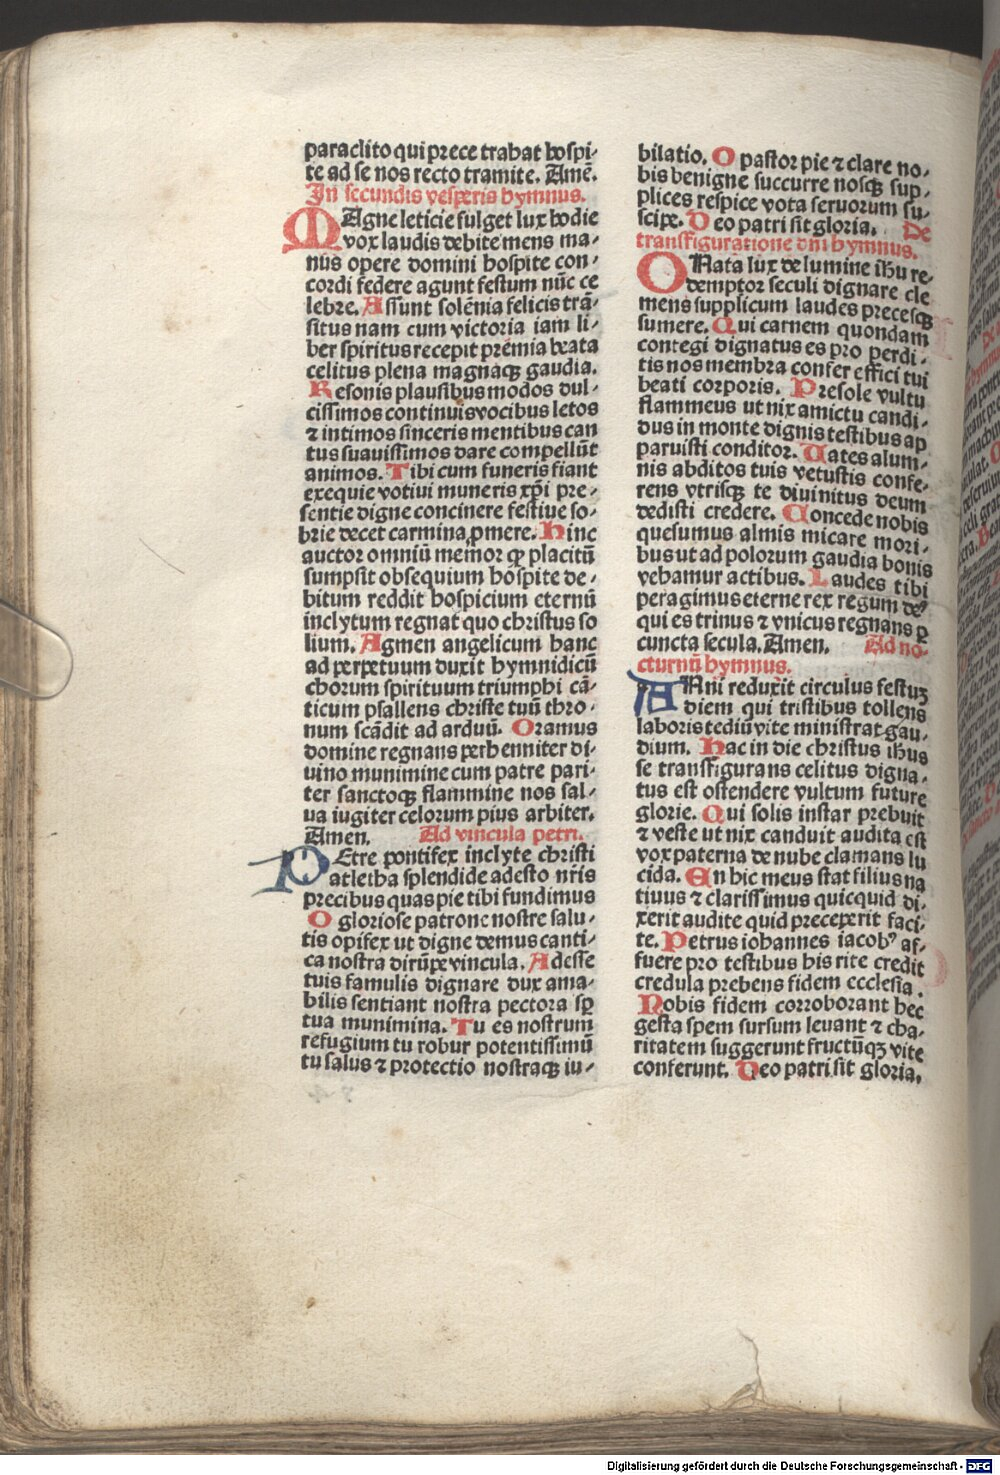 paraclito qui prece trahat hospi-
te ad se nos recto tramite. Amē.
In secundis vesperis hymnus.
MAgne leticie fulget lux hodie
vox laudis debite mens ma-
nus opere domini hospite con-
cordi federe agunt festum nūc ce
lebre. Assunt solēnia felicis trā-
situs nam cum victoria iam li-
ber spiritus recepit premia beata
celitus plena magnaqꝫ gaudia.
Resonis plausibus modos dul-
cissimos continuis vocibus letos
⁊ intimos sinceris mentibus can
tus suavissimos dare compellūt
animos. Tibi cum funeris fiant
exequie votivi muneris xp̄i pre-
sentie digne concinere festive so-
brie decet carmina ꝓmere. Hinc
auctor omniū memor qꝫ placitū
sumpsit obsequium hospite de-
bitum reddit hospicium eternū
inclytum regnat quo christus so
lium. Agmen angelicum hanc
ad perpetuum duxit hymnidicū
chorum spirituum triumphi cā-
ticum psallens christe tuū thro-
num scādit ad arduū. Oramus
domine regnans perhenniter di-
uino munimine cum patre pari-
ter sanctoqꝫ flammine nos sal-
ua iugiter celorum pius arbiter.
Amen. Ad vincula petri.
PEtre pontifex inclyte christi
atletha splendide adesto nr̄is
precibus quas pie tibi fundimus
O gloriose patrone nostre salu-
tis opifex ut digne demus canti-
ca nostra dirūpe vincula. Adesse
tuis famulis dignare dux ama-
bilis sentiant nostra pectora sꝑ
tua munimina. Tu es nostrum
refugium tu robur potentissimū
tu salus ⁊ protectio nostraqꝫ iu-
bilatio. O pastor pie ⁊ clare no-
bis benigne succurre nosqꝫ sup-
plices respice vota seruorum su-
scipe. Deo patri sit gloria. De
transfiguratione dn̄i hymnus.
ONata lux de lumine ih̄u re-
demptor seculi dignare cle
mens supplicum laudes precesqꝫ
sumere. Qui carnem quondam
contegi dignatus es pro perdi-
tis nos membra confer effici tui
beati corporis. Presole vultu
flammeus ut nix amictu candi-
dus in monte dignis testibus ap
paruisti conditor. Uates alum-
nis abditos tuis vetustis confe-
rens vtrisqꝫ te diuinitus deum
dedisti credere. Concede nobis
quesumus almis micare mori-
bus ut ad polorum gaudia bonis
vehamur actibus. Laudes tibi
peragimus eterne rex regum deꝰ
qui es trinus ⁊ vnicus regnans ꝑ
cuncta secula. Amen. Ad no-
cturnū hymnus.
ANni reduxit circulus festuꝫ
diem qui tristibus tollens
laboris tediū vite ministrat gau-
dium. Hac in die christus ih̄us
se transfigurans celitus digna-
tus est ostendere vultum future
glorie. Qui solis instar prebuit
⁊ veste ut nix canduit audita est
vox paterna de nube clamans lu
cida. En hic meus stat filius na
tiuus ⁊ clarissimus quicquid di-
xerit audite quid preceperit faci-
te. Petrus iohannes iacobꝰ af-
fuere pro testibus his rite credit
credula prebens fidem ecclesia.
Nobis fidem corroborant hec
gesta spem sursum leuant ⁊ cha-
ritatem suggerunt fructūqꝫ vite
conferunt. Deo patri sit gloria.
Digitalisierung gefördert durch die Deutsche Forschungsgemeinschaft - DFG